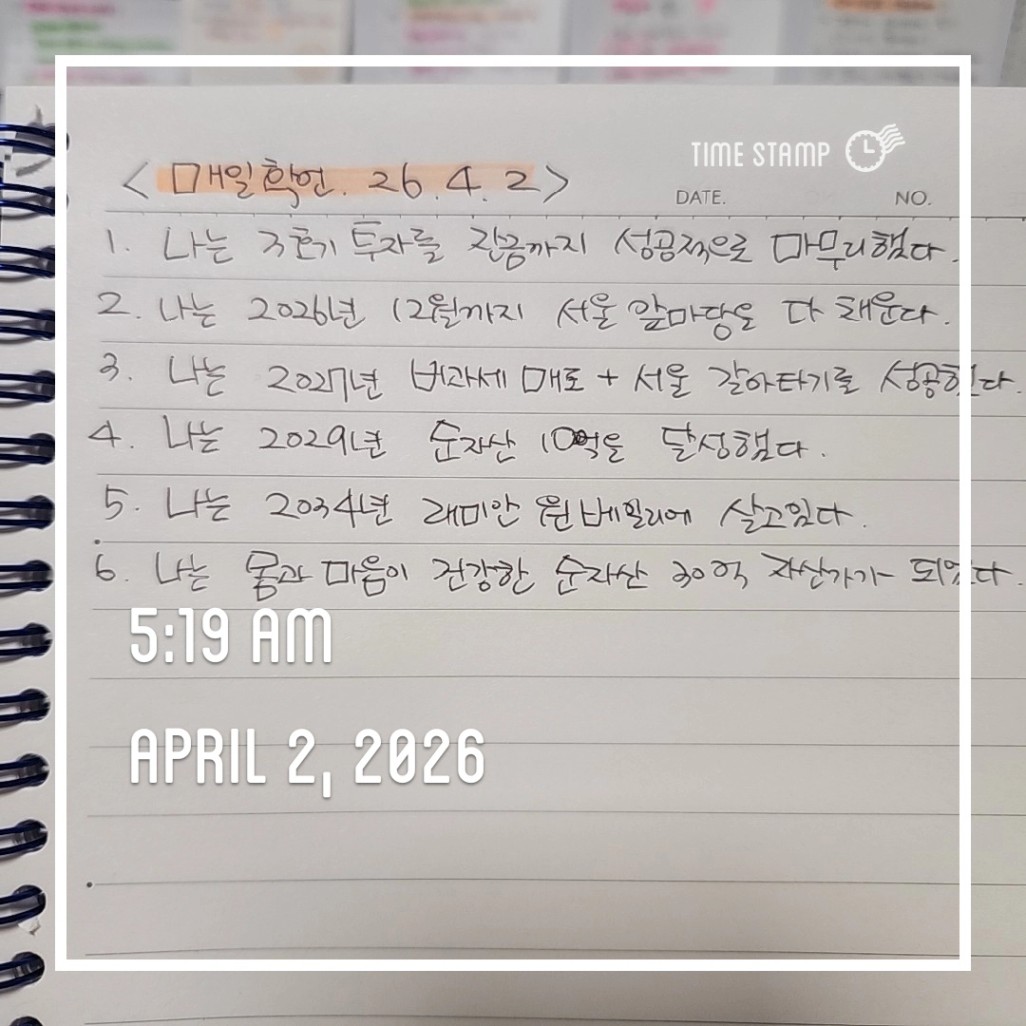 TIME STAMP
< 매일확언. 26. 4. 2 >
DATE. NO.
1. 나는 3호기 투자를 잔금까지 성공적으로 마무리했다.
2. 나는 2026년 12월까지 서울 앞마당을 다 채운다.
3. 나는 2027년 비과세 매도 + 서울 갈아타기를 성공한다.
4. 나는 2029년 순자산 10억을 달성했다.
5. 나는 2034년 래미안 원베일리에 살고있다.
6. 나는 몸과 마음이 건강한 순자산 30억 자산가가 되었다.
5:19 AM
APRIL 2, 2026